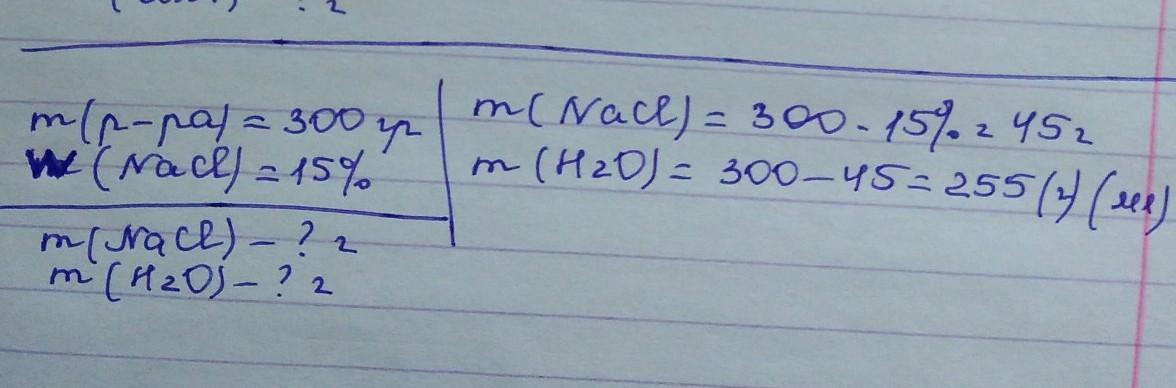 m(р-ра) = 300 гр
w(NaCl) = 15%
m(NaCl) - ? г
m(H2O) - ? г
m(NaCl) = 300 · 15% = 45г
m(H2O) = 300 - 45 = 255 (г) (мл)